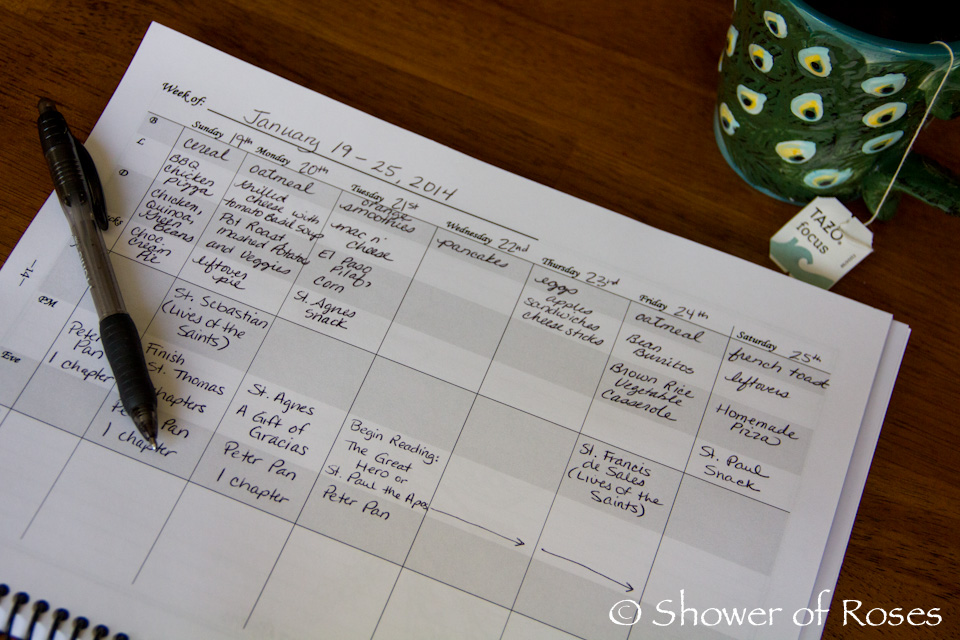 Week of: January 19 - 25, 2014
B
L
D
-14-
PM
Eve
Sunday 19th
cereal
BBQ
chicken
pizza
chicken,
Quinoa,
Green
Beans
choc.
cream
Pie
Peter
Pan
1 chapter
Monday 20th
oatmeal
Grilled
cheese with
tomato Basil Soup
Pot Roast
mashed Potatoes
and veggies
leftover
pie
St. Sebastian
(Lives of the
Saints)
Finish
St. Thomas
chapters
Pan
1 chapter
Tuesday 21st
orange
smoothies
mac n'
cheese
El Paso
Pilaf,
corn
St. Agnes
Snack
St. Agnes
A Gift of
Gracias
Peter Pan
1 chapter
Wednesday 22nd
pancakes
Begin Reading:
The Great
Hero or
St. Paul the Apos
Peter Pan
Thursday 23rd
eggs
apples
sandwiches
cheese sticks
Friday 24th
oatmeal
Bean
Burritos
Brown Rice
Vegetable
Casserole
St. Francis
de Sales
(Lives of the
Saints)
Saturday 25th
french toast
leftovers
Homemade
Pizza
St. Paul
Snack
TAZO.
focus
© Shower of Roses